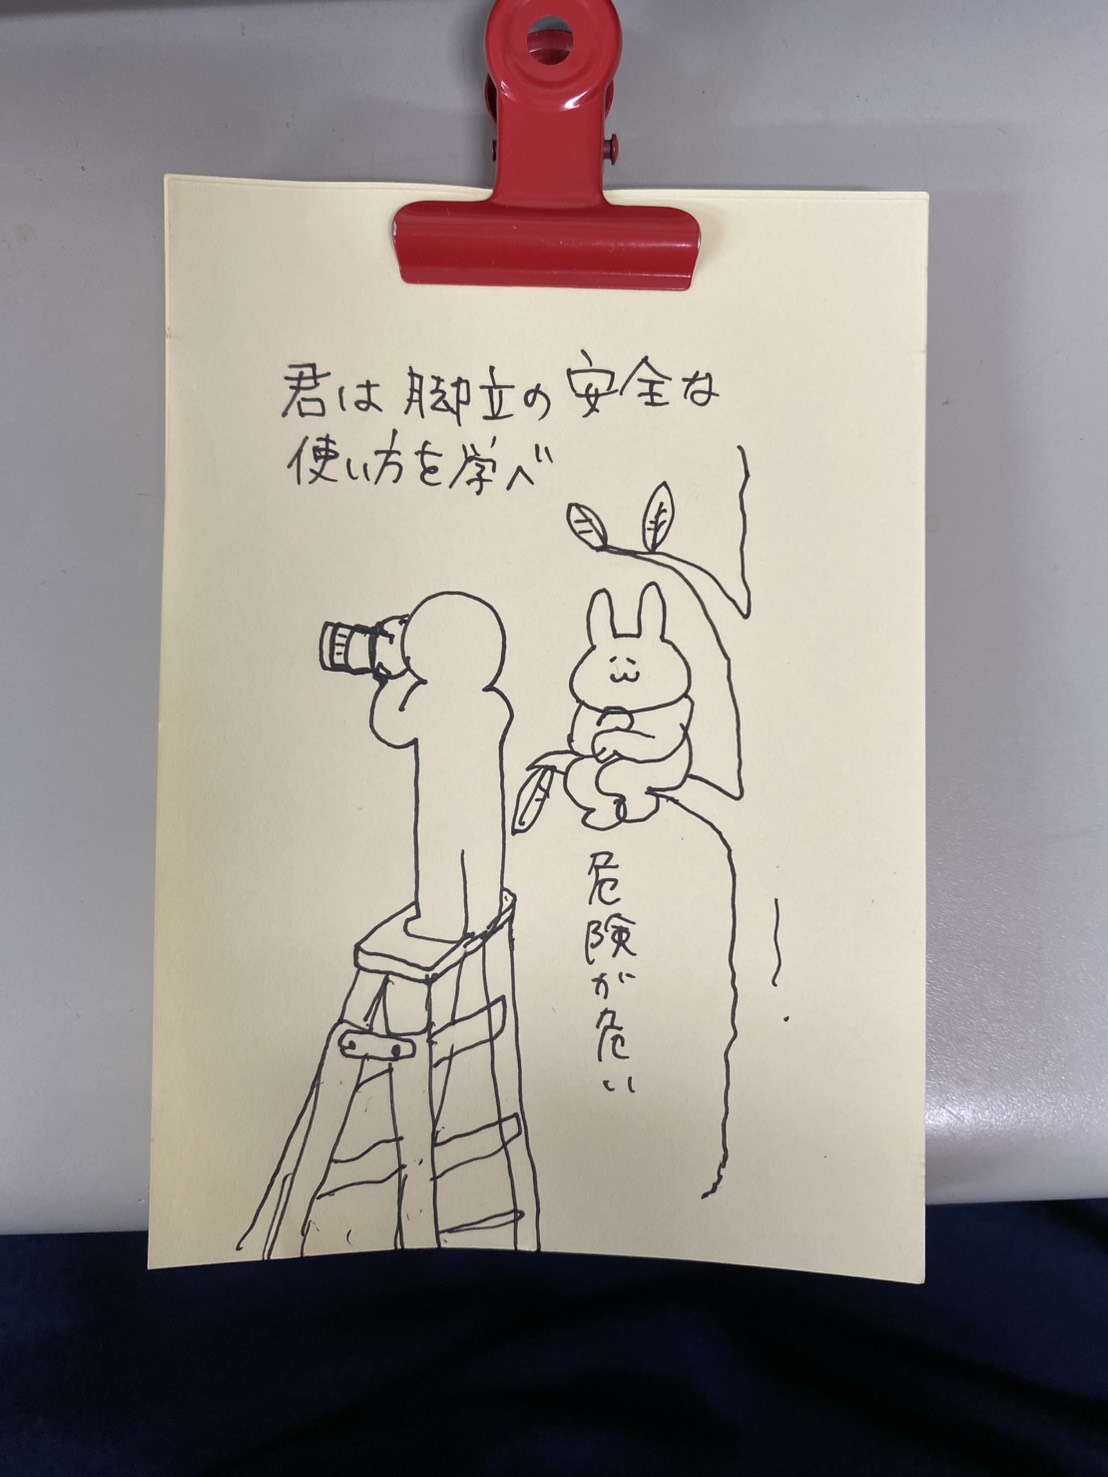 君は脚立の安全な
使い方を学べ
危険が危い